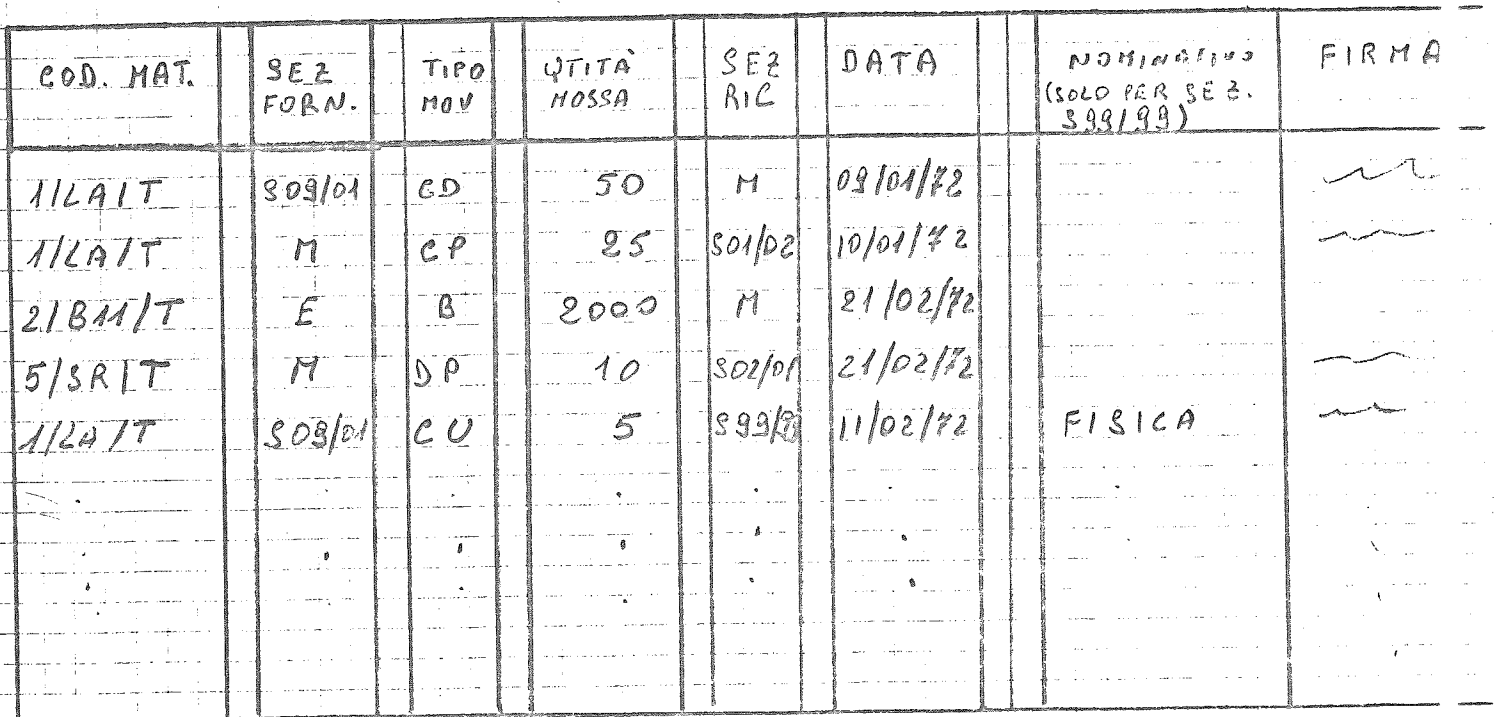 COD. MAT. SEZ FORN. TIPO MOV QTITÀ MOSSA SEZ RIC DATA NOMINATIVO (SOLO PER SEZ. S99/99) FIRMA
1/LA/T S09/01 CD 50 M 09/01/72
1/LA/T M CP 25 S01/02 10/01/72
2/B11/T E B 2000 M 21/02/72
5/SR/T M DP 10 S02/01 21/02/72
1/LA/T S09/01 CU 5 S99/99 11/02/72 FISICA